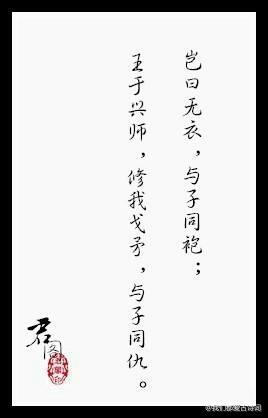 岂曰无衣，与子同袍；
王于兴师，修我戈矛，与子同仇。
君阁
@我们都爱古诗词